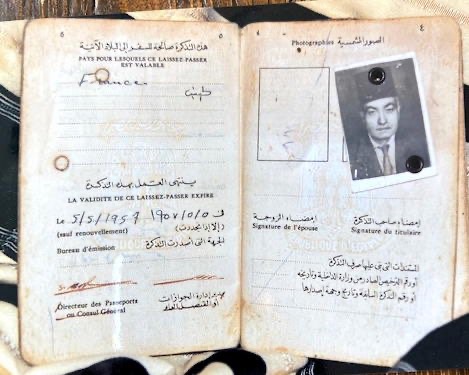 ٥
هذه التذكرة صالحة للسفر إلى البلاد الآتية
PAYS POUR LESQUELS CE LAISSEZ-PASSER
EST VALABLE
France
ينتهى العمل بهذه التذكرة
LA VALIDITE DE CE LAISSEZ-PASSER EXPIRE
Le 5/5/1957 ١٩٥٧/٥/٥ فى
(sauf renouvellement) (إلا إذا جددت)
Bureau d'émission الجهة التى أصدرت التذكرة
Directeur des Passeports
ou Consul Général
مدير إدارة الجوازات
أو القنصل العام
٤
Photographies الصور الشمسية
إمضاء الزوجة
Signature de l'épouse
إمضاء صاحب التذكرة
Signature du titulaire
المستندات التى بنى عليها صرف التذكرة
أو رقم الترخيص الصادر من وزارة الداخلية وتاريخه
أو رقم التذكرة السابقة وتاريخ وجهة إصدارها